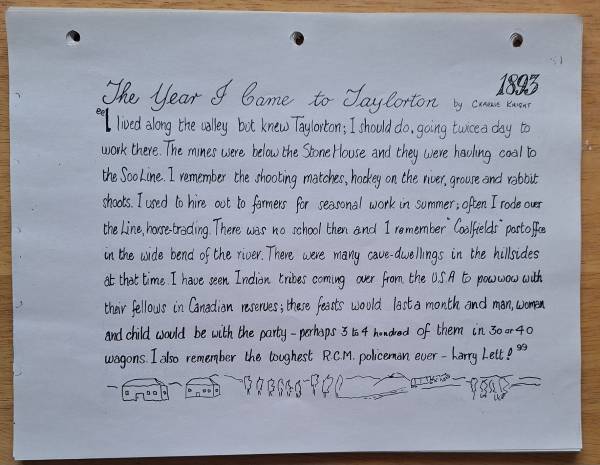 1893
The Year I Came to Taylorton by Charlie Knight
"I lived along the valley but knew Taylorton; I should do, going twice a day to
work there. The mines were below the Stone House and they were hauling coal to
the Soo Line. I remember the shooting matches, hockey on the river, grouse and rabbit
shoots. I used to hire out to farmers for seasonal work in summer; often I rode over
the Line, horse-trading. There was no school then and I remember "Coalfields" postoffice
in the wide bend of the river. There were many cave-dwellings in the hillsides
at that time. I have seen Indian tribes coming over from the U.S.A to powwow with
their fellows in Canadian reserves; these feasts would last a month and man, women
and child would be with the party - perhaps 3 to 4 hundred of them in 30 or 40
wagons. I also remember the toughest R.C.M. policeman ever - Larry Lett!"